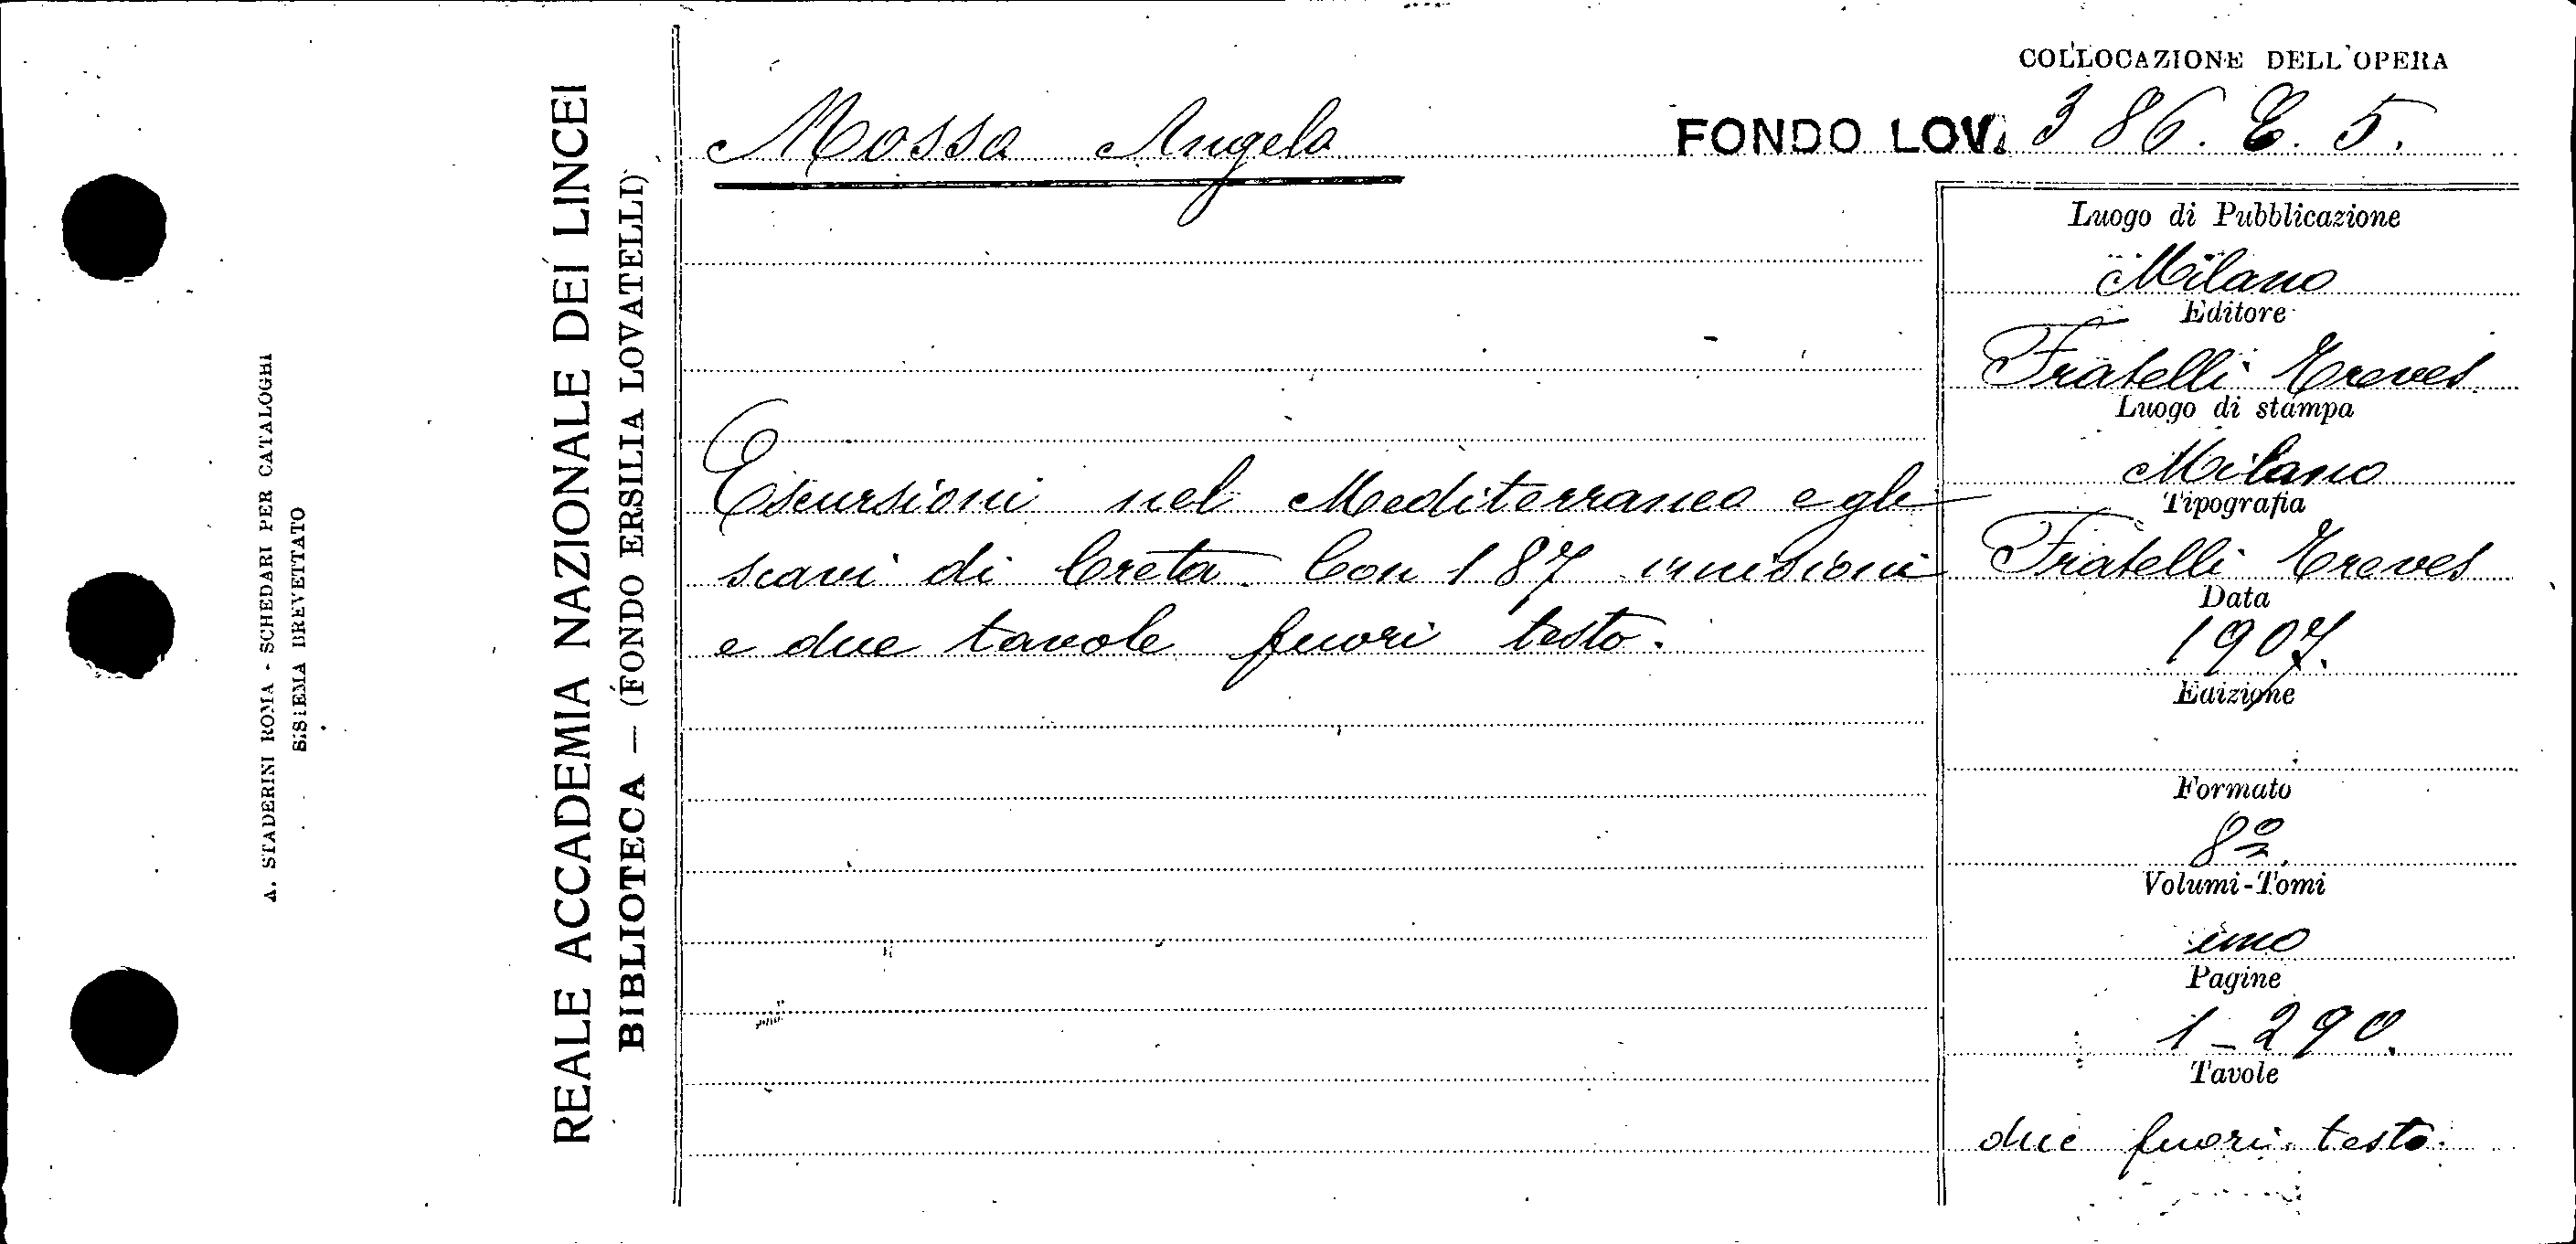 COLLOCAZIONE DELL'OPERA
Mosso Angelo
FONDO LOV. 386. E. 5.
Escursioni nel Mediterraneo e gli
scavi di Creta. Con 187 incisioni
e due tavole fuori testo.
Luogo di Pubblicazione
Milano
Editore
Fratelli Treves
Luogo di stampa
Milano
Tipografia
Fratelli Treves
Data
1907.
Edizione
Formato
8º
Volumi-Tomi
uno
Pagine
1-290.
Tavole
due fuori testo.
REALE ACCADEMIA NAZIONALE DEI LINCEI
BIBLIOTECA — (FONDO ERSILIA LOVATELLI)
A. STADERINI ROMA - SCHEDARI PER CATALOGHI
SISTEMA BREVETTATO